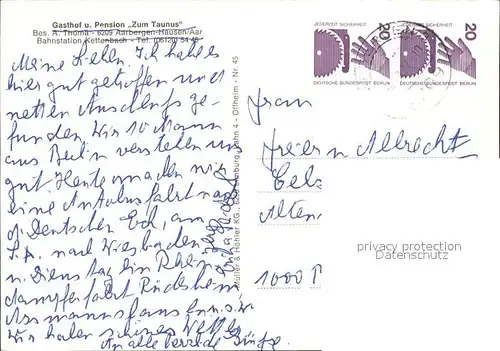 Gasthof u. Pension „Zum Taunus"
Bes. A. Thoma - 6209 Aarbergen-Hausen/Aar
Bahnstation Kettenbach - Tel. (06120) 54 48
Meine Lieben. Ich habe es
hier gut getroffen und
netten Anschluß ge-
funden. Wir 10 Mann
aus Berlin verstehen uns
gut. Heute machen wir
eine Autobusfahrt nach
d. Deutschen Eck, am
nach Wiesbaden
u. Dienstag ein Rhein
dampferfahrt Rüdesheim
Assmannshausen u.s.w.
Wir haben schönes Wetter
An alle herzliche Grüße
Müller & Mahler KG, Bahn 4 - Offheim - Nr. 45
JEDERZEIT SICHERHEIT
20
DEUTSCHE BUNDESPOST BERLIN
JEDERZEIT SICHERHEIT
20
DEUTSCHE BUNDESPOST BERLIN
Frau
Albrecht
1000
privacy protection
Datenschutz